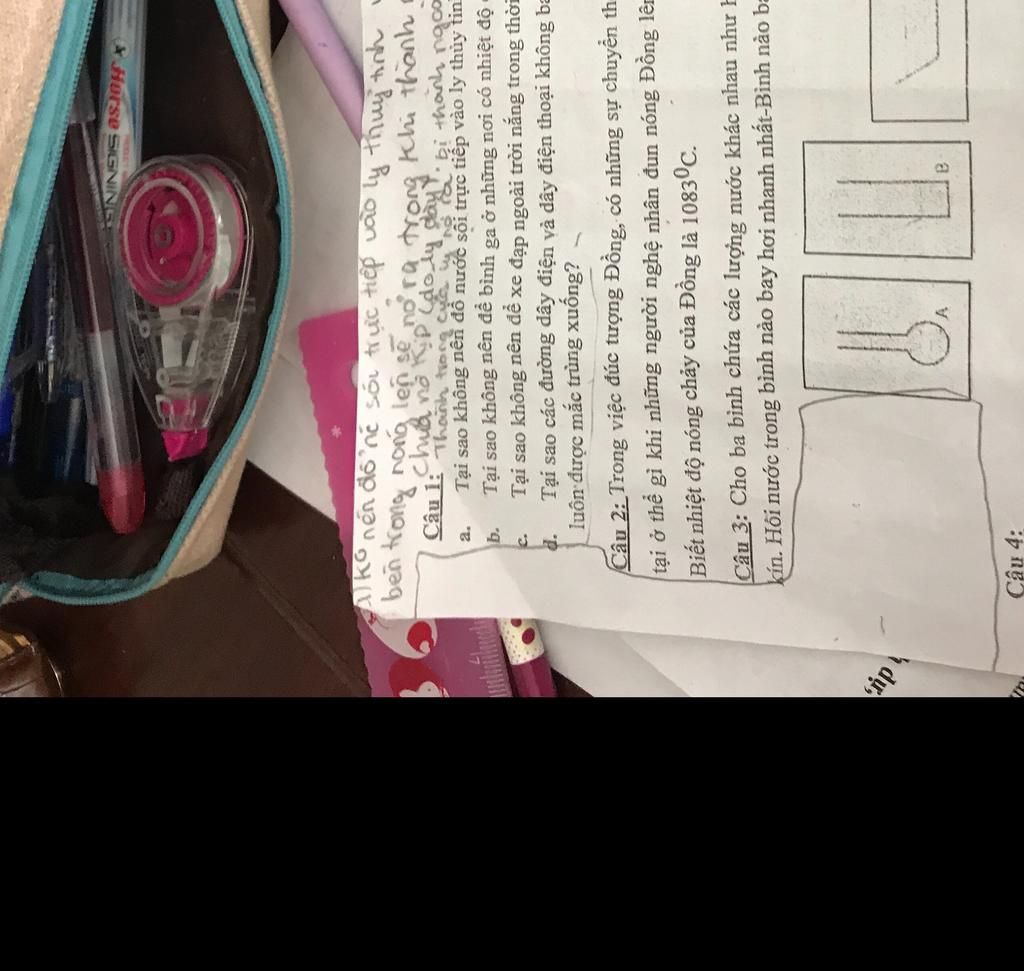 a/ ko nên đổ nc sôi trực tiếp vào ly thuỷ tinh
bên trong nóng lên sẽ nở ra trong khi thành
chưa nở kịp (do ly dày).
Thành trong của ly nở ra, bị thành ngoà
Câu 1:
a. Tại sao không nên đổ nước sôi trực tiếp vào ly thủy tinh
b. Tại sao không nên để bình ga ở những nơi có nhiệt độ
c. Tại sao không nên để xe đạp ngoài trời nắng trong thời
d. Tại sao các đường dây điện và dây điện thoại không ba
luôn được mắc trùng xuống?
Câu 2: Trong việc đúc tượng Đồng, có những sự chuyển th
tại ở thể gì khi những người nghệ nhân đun nóng Đồng lên
Biết nhiệt độ nóng chảy của Đồng là 1083⁰C.
Câu 3: Cho ba bình chứa các lượng nước khác nhau như h
kín. Hỏi nước trong bình nào bay hơi nhanh nhất-Bình nào ba
A
B
Câu 4:
Horse
SIGNING